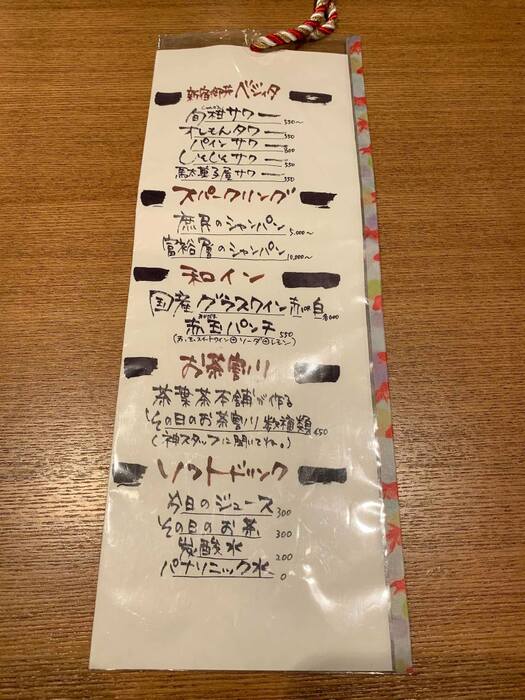 新宿御井 ベジィタ
旬柑サワー 550〜
すしもんタワー 550
パインサワー 800
じぞじぞサワー 550
駄太菓子屋サワー 550
スパークリング
庶民のシャンパン 5,000〜
富裕層のシャンパン 10,000〜
和イン
国産グラスワイン 赤or白 各600
赤玉パンチ 550
(赤玉スイートワイン⊕ソーダ⊕レモン)
お茶割り
茶葉茶本舗が作る
その日のお茶割り 数種類 650
(神スタッフに聞いてね。)
ソフトドリンク
今日のジュース 300
その日のお茶 300
炭酸水 200
パナソニック水 0